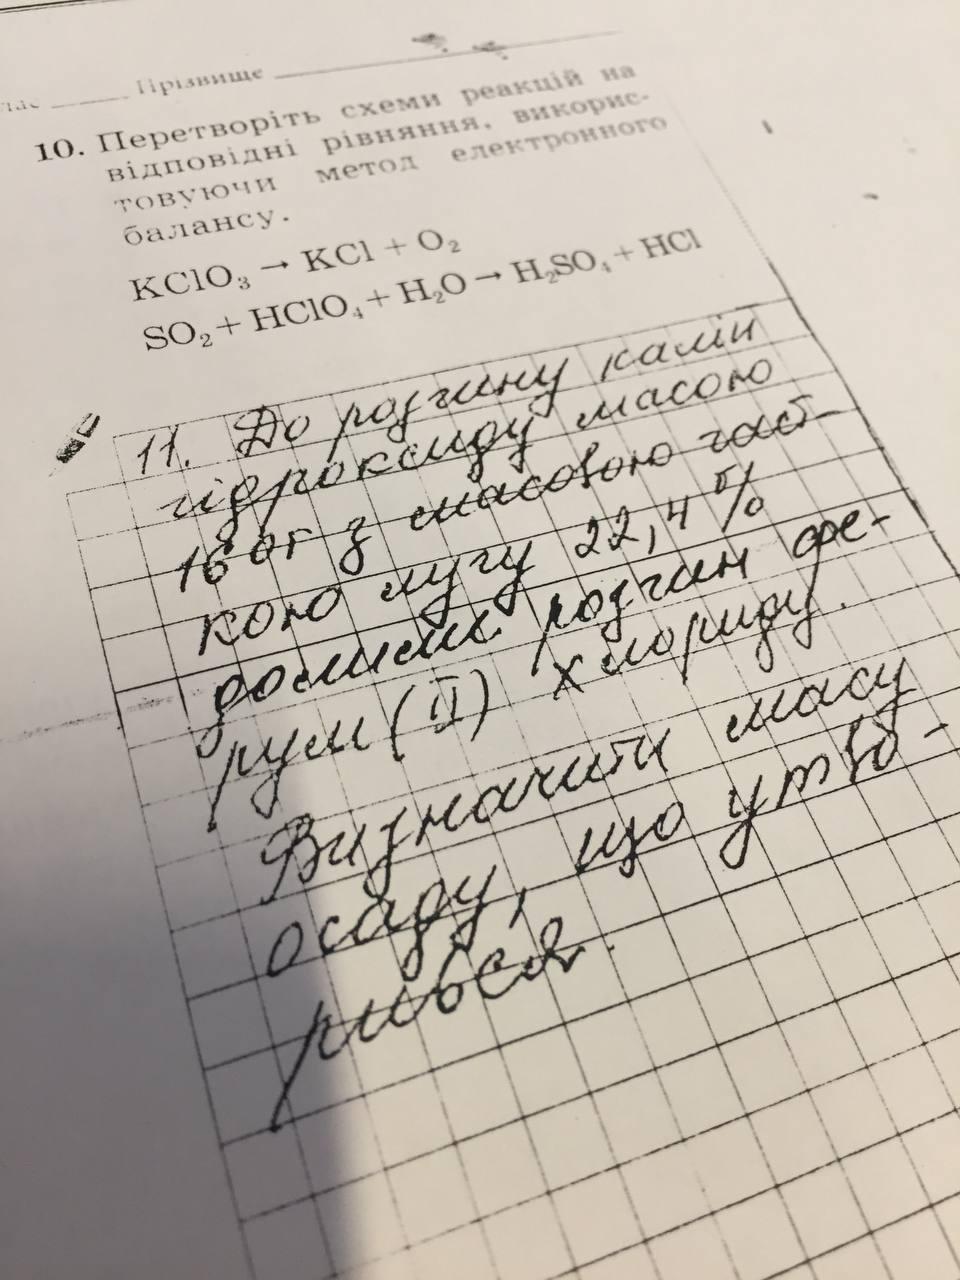 Прізвище
10. Перетворіть схеми реакцій на
відповідні рівняння, викорис-
товуючи метод електронного
балансу.
KClO₃ → KCl + O₂
SO₂ + HClO₄ + H₂O → H₂SO₄ + HCl
11. До розчину калій
гідроксиду масою
г з масовою част-
кою лугу 22,4%
долили розчин фе-
рум (II) хлориду.
Визначити масу
осаду, що утво-
рився.